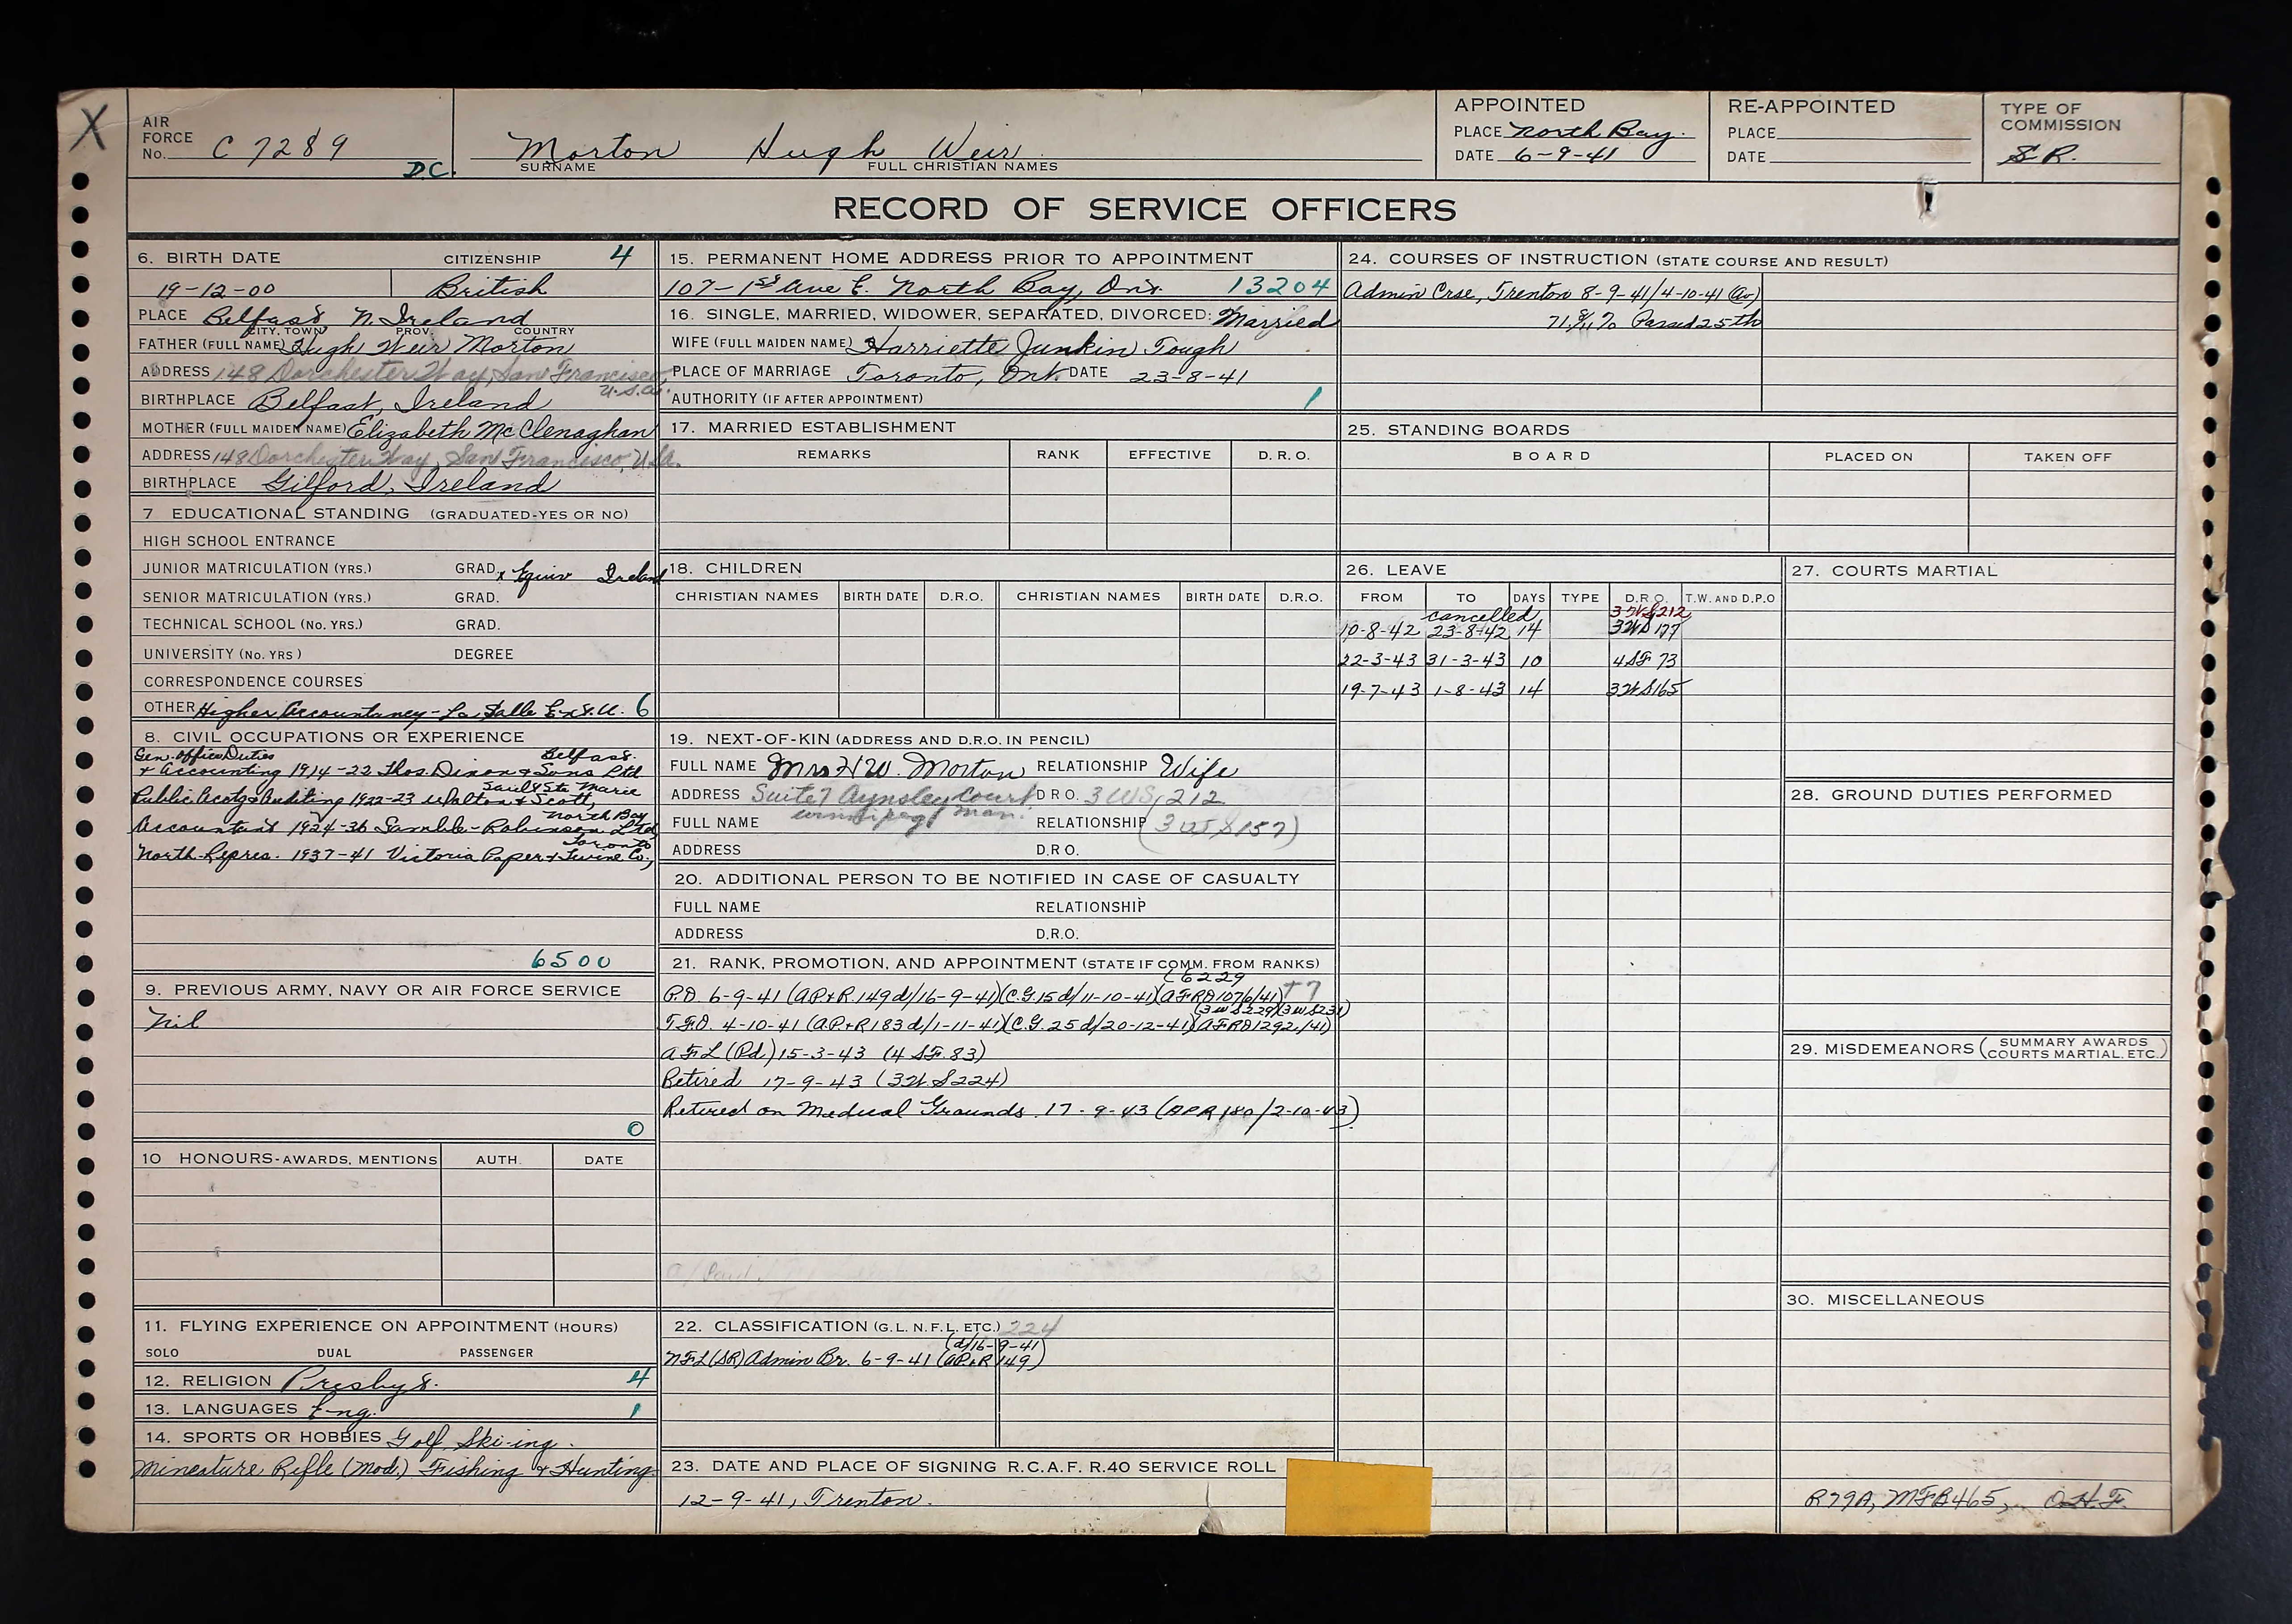 X
AIR FORCE No. C 7289
D.C.
Morton Hugh Weir
SURNAME FULL CHRISTIAN NAMES
APPOINTED
PLACE North Bay.
DATE 6-9-41
RE-APPOINTED
PLACE
DATE
TYPE OF COMMISSION
S.R.
RECORD OF SERVICE OFFICERS
6. BIRTH DATE CITIZENSHIP 4
19-12-00 British
PLACE Belfast N. Ireland
CITY, TOWN PROV. COUNTRY
FATHER (FULL NAME) Hugh Weir Morton
ADDRESS 148 Dorchester Way, San Francisco, U.S.A.
BIRTHPLACE Belfast, Ireland
MOTHER (FULL MAIDEN NAME) Elizabeth McClenaghan
ADDRESS 148 Dorchester Way, San Francisco, U.S.A.
BIRTHPLACE Gilford, Ireland
7 EDUCATIONAL STANDING (GRADUATED-YES OR NO)
HIGH SCHOOL ENTRANCE
JUNIOR MATRICULATION (YRS.) GRAD. x Equiv Ireland
SENIOR MATRICULATION (YRS.) GRAD.
TECHNICAL SCHOOL (No. YRS.) GRAD.
UNIVERSITY (No. YRS) DEGREE
CORRESPONDENCE COURSES
OTHER Higher Accountancy - La Salle Ex. U. 6
8. CIVIL OCCUPATIONS OR EXPERIENCE
Gen. Office Duties Belfast.
+ Accounting 1914-22 Thos. Dixon & Sons Ltd
Sault Ste Marie
Public Acctg & Auditing 1922-23 Walton & Scott,
North Bay
Accountant 1924-36 Samble-Robinson Ltd
Toronto
North. Repres. 1937-41 Victoria Paper & Twine Co.,
6500
9. PREVIOUS ARMY, NAVY OR AIR FORCE SERVICE
Nil
0
10 HONOURS-AWARDS, MENTIONS AUTH. DATE
11. FLYING EXPERIENCE ON APPOINTMENT (HOURS)
SOLO DUAL PASSENGER
12. RELIGION Presbyt. 4
13. LANGUAGES Eng. 1
14. SPORTS OR HOBBIES Golf, Ski-ing.
Mineature Rifle (Mod.) Fishing & Hunting.
15. PERMANENT HOME ADDRESS PRIOR TO APPOINTMENT
107-1st Ave E. North Bay, Ont. 13204
16. SINGLE, MARRIED, WIDOWER, SEPARATED, DIVORCED: Married
WIFE (FULL MAIDEN NAME) Harriette Junkin Tough
PLACE OF MARRIAGE Toronto, Ont. DATE 23-8-41
AUTHORITY (IF AFTER APPOINTMENT) 1
17. MARRIED ESTABLISHMENT
REMARKS RANK EFFECTIVE D. R. O.
18. CHILDREN
CHRISTIAN NAMES BIRTH DATE D.R.O. CHRISTIAN NAMES BIRTH DATE D.R.O.
19. NEXT-OF-KIN (ADDRESS AND D.R.O. IN PENCIL)
FULL NAME Mrs H.W. Morton RELATIONSHIP Wife
ADDRESS Suite 7 Aynsley Court D R O. 3WS 212
Winnipeg Man.
FULL NAME RELATIONSHIP (3WS157)
ADDRESS D.R.O.
20. ADDITIONAL PERSON TO BE NOTIFIED IN CASE OF CASUALTY
FULL NAME RELATIONSHIP
ADDRESS D.R.O.
21. RANK, PROMOTION, AND APPOINTMENT (STATE IF COMM. FROM RANKS)
C6229
P.O. 6-9-41 (AP&R.149 d/16-9-41)(C.G.15 d/11-10-41)(AFRO1076/41) T7
(3WS229)(3WS231)
T.F.O. 4-10-41 (AP&R183 d/1-11-41)(C.G.25 d/20-12-41)(AFRO1292/41)
AFL (Pd) 15-3-43 (4 SF.83)
Retired 17-9-43 (3WS224)
Retired on Medical Grounds. 17-9-43 (APR180/2-10-43)
22. CLASSIFICATION (G.L. N.F.L. ETC.) 224
(d/16-9-41)
NFL(SR) Admin Br. 6-9-41 (AP&R 149)
23. DATE AND PLACE OF SIGNING R.C.A.F. R.40 SERVICE ROLL
12-9-41, Trenton.
24. COURSES OF INSTRUCTION (STATE COURSE AND RESULT)
Admin Crse, Trenton 8-9-41/4-10-41 (Av)
Passed 25th
25. STANDING BOARDS
BOARD PLACED ON TAKEN OFF
26. LEAVE
FROM TO DAYS TYPE D.R.O. T.W. AND D.P.O
cancelled 3WS212
10-8-42 23-8-42 14 3WS 177
22-3-43 31-3-43 10 4SF 73
19-7-43 1-8-43 14 3WS165
27. COURTS MARTIAL
28. GROUND DUTIES PERFORMED
29. MISDEMEANORS (SUMMARY AWARDS COURTS MARTIAL, ETC.)
30. MISCELLANEOUS
R79A, MFB465, O.H.F.